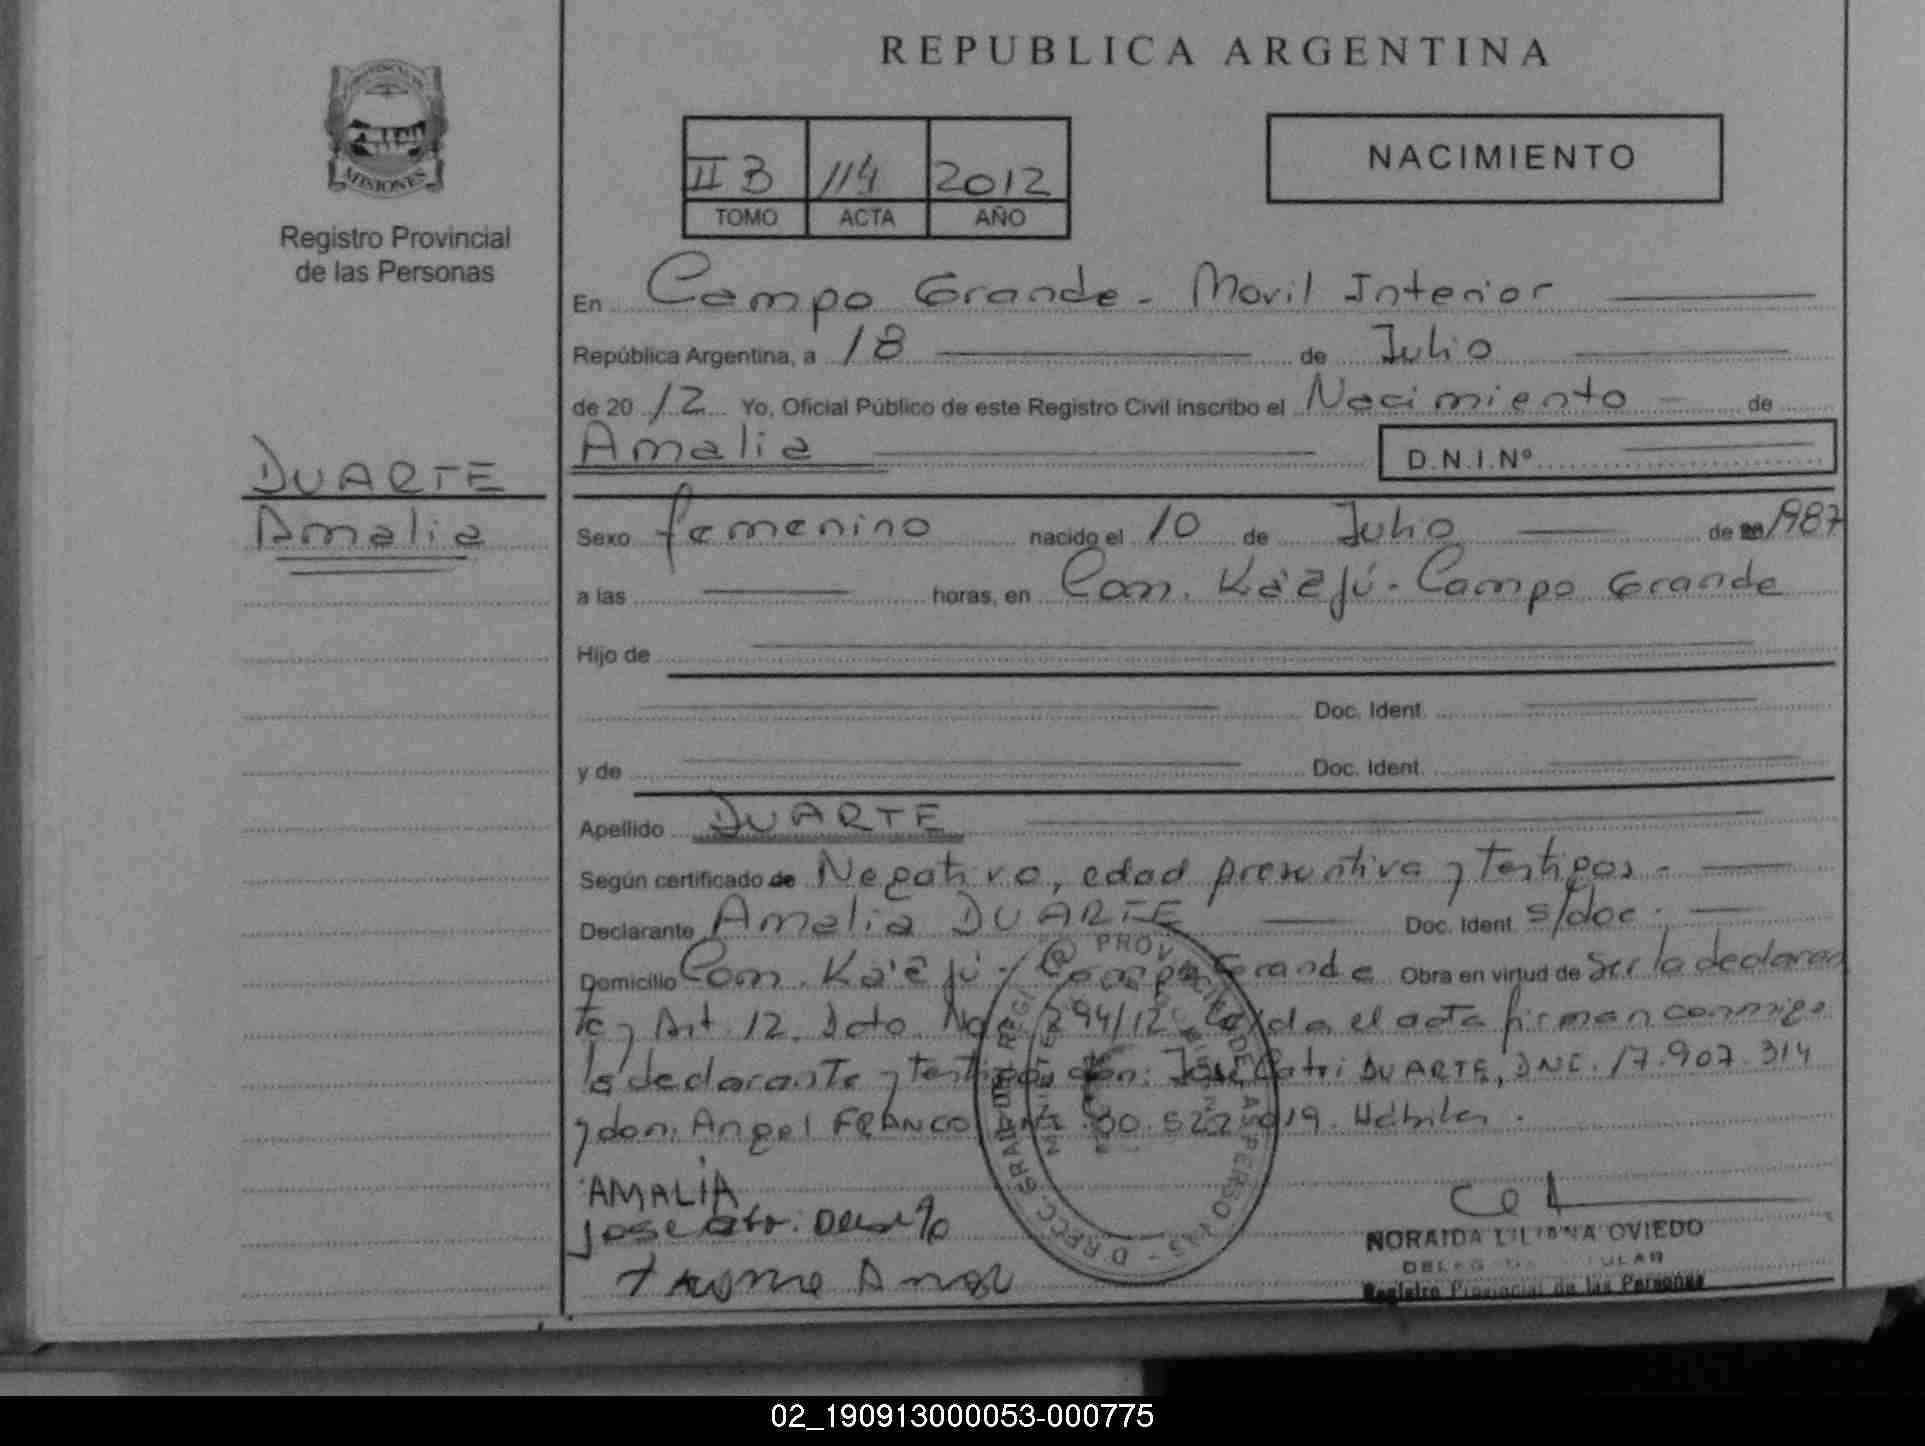 REPUBLICA ARGENTINA
PROVINCIA DE
MISIONES
Registro Provincial
de las Personas
II B 114 2012
TOMO ACTA AÑO
NACIMIENTO
En Campo Grande - Movil Interior
República Argentina, a 18 de Julio
de 20 12 Yo, Oficial Público de este Registro Civil inscribo el Nacimiento de
Amalia D.N.I.Nº
DUARTE
Amalia
Sexo femenino nacido el 10 de Julio de 1987
a las horas, en Com. Ka'ẽ Jú - Campo Grande
Hijo de
Doc. Ident.
y de Doc. Ident.
Apellido DUARTE
Según certificado de Negativo, edad presuntiva y Testigos -
Declarante Amalia DUARTE Doc. Ident. s/doc.
Domicilio Com. Ka'ẽ Jú - Campo Grande Obra en virtud de Ser la declaran
te y Art. 12. Dcto. Nac 294/12 Leída el acta firman conmigo
la declarante y testigos don: José Catri DUARTE, DNI. 17.907.314
y don: Angel FRANCO 30.522.019. Hábiles.
AMALIA
NORAIDA LILIANA OVIEDO
Registro Provincial de las Personas
02_190913000053-000775